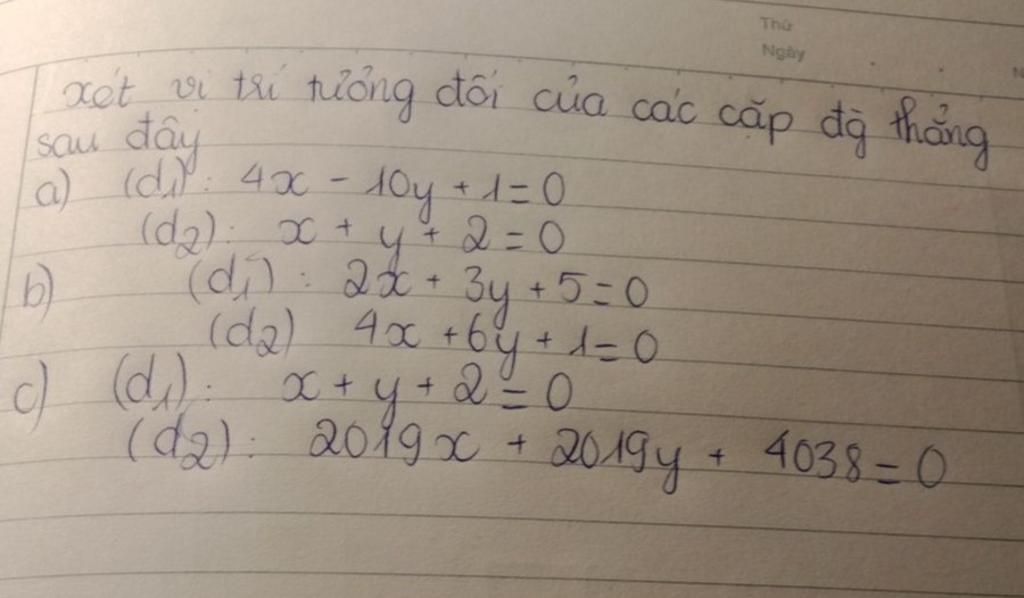 Thứ
Ngày
xét vị trí tưởng đối của các cặp đg thẳng
sau đây
a) (d1): 4x - 10y + 1 = 0
(d2): x + y + 2 = 0
b) (d1): 2x + 3y + 5 = 0
(d2) 4x + 6y + 1 = 0
c) (d1): x + y + 2 = 0
(d2): 2019x + 2019y + 4038 = 0